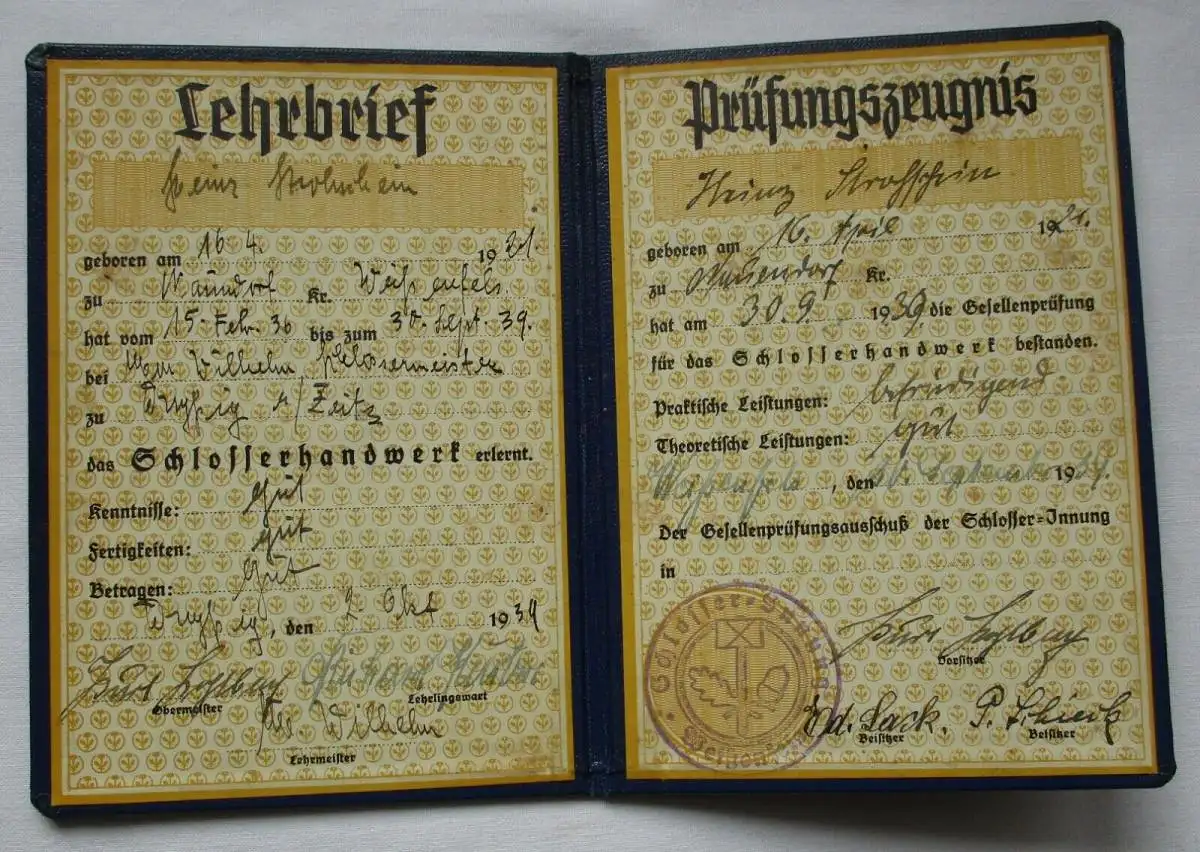 Lehrbrief
Heinz Strohschein
geboren am 16. 4. 1921.
zu Kr. Weißenfels
hat vom 15. Febr. 36 bis zum 30. Sept. 39.
bei Wilhelm, Schlossermeister
zu Droyßig b/Zeitz
das Schlosserhandwerk erlernt.
Kenntnisse: gut
Fertigkeiten: gut
Betragen: gut
Droyßig, den 2 Okt 1939
Kurt
Obermeister
Lehrlingswart
Wilhelm
Lehrmeister
Prüfungszeugnis
Heinz Strohschein
geboren am 16. April 1921.
zu Kr.
hat am 30.9. 1939. die Gesellenprüfung
für das Schlosserhandwerk bestanden.
Praktische Leistungen: befriedigend
Theoretische Leistungen: gut
Weißenfels, den 30. September 1939.
Der Gesellenprüfungsausschuß der Schlosser-Innung
in
Schlosser-Innung
Weißenfels
Kurt
Vorsitzer
Ed. Lack. P. Schieck
Beisitzer Beisitzer